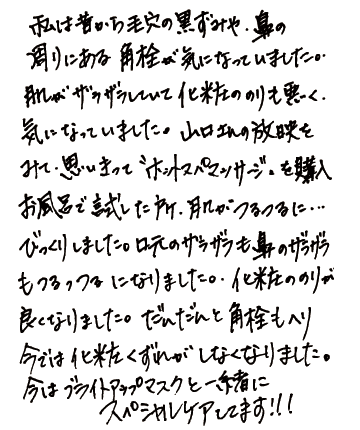 私は昔から毛穴の黒ずみや、鼻の
周りにある角栓が気になっていました。
肌がザラザラしていて化粧ののりも悪く、
気になっていました。山口さんの放映を
みて、思いきって"ホットスパマッサージ"を購入
お風呂で試した所、肌がつるつるに…
びっくりしました。口元のザラザラも鼻のザラザラ
もつるっつるになりました。化粧ののりが
良くなりました。だんだんと角栓もへり
今では化粧くずれがしなくなりました。
今はブライトアップマスクと一緒に
スペシャルケアしてます!!!